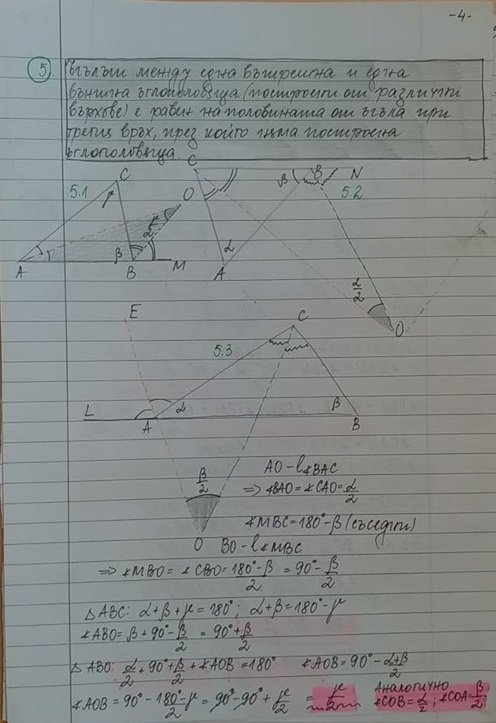 -4-
5
Ъгълът между една вътрешна и една
външна ъглополовяща (построени от различни
върхове) е равен на половината от ъгъла при
третия връх, през който няма построена
ъглополовяща.
5.1
A
B
C
O
M
β
γ/2
5.2
C
A
B
N
O
α
α/2
E
5.3
C
L
A
α
β
B
β/2
O
AO - l∢BAC
⇒ ∢BAO = ∢CAO = α/2
∢MBC = 180° - β (съседни)
BO - l∢MBC
⇒ ∢MBO = ∢CBO = 180° - β/2 = 90° - β/2
△ABC: α + β + γ = 180°; α + β = 180° - γ
∢ABO = β + 90° - β/2 = 90° + β/2
△ABO: α/2 + 90° + β/2 + ∢AOB = 180° ∢AOB = 90° - α+β/2
∢AOB = 90° - 180° - γ/2 = 90° - 90° + γ/2 = γ/2 Аналогично ∢COB = α/2, ∢COA = β/2